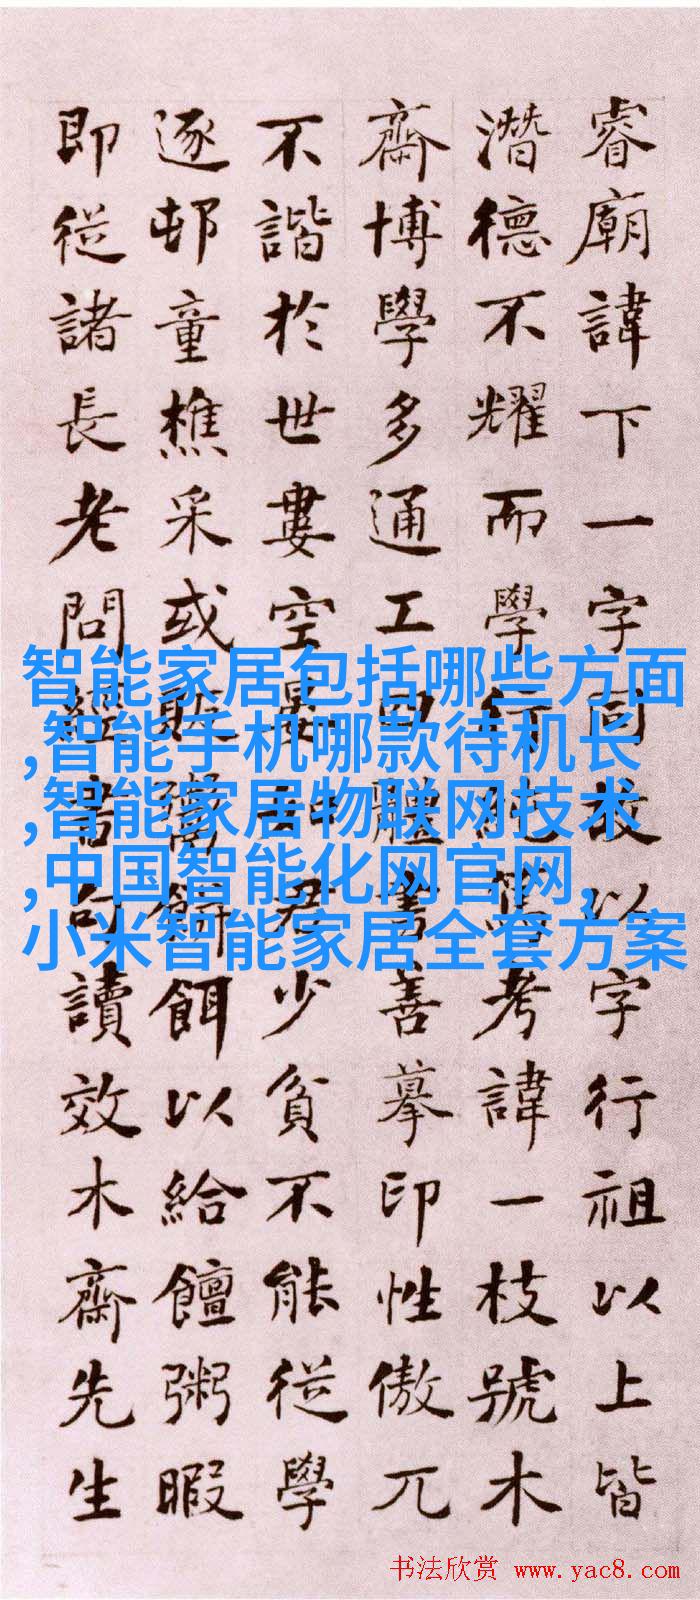 睿廟諱下一字同故以字行祖以上皆
潛德不耀而學行純篤考諱一枝號木
齋博學多通工四體書善摹印性傲兀
不諧於世婁空晏如君少貧不能從學
逐邨童樵采或販鬻餅餌以給饘粥暇
即從諸長老問經書句讀效木齋先生
智能家居包括哪些方面
,智能手机哪款待机长
,智能家居物联网技术
,中国智能化网官网,
小米智能家居全套方案
书法欣赏 www.yac8.com